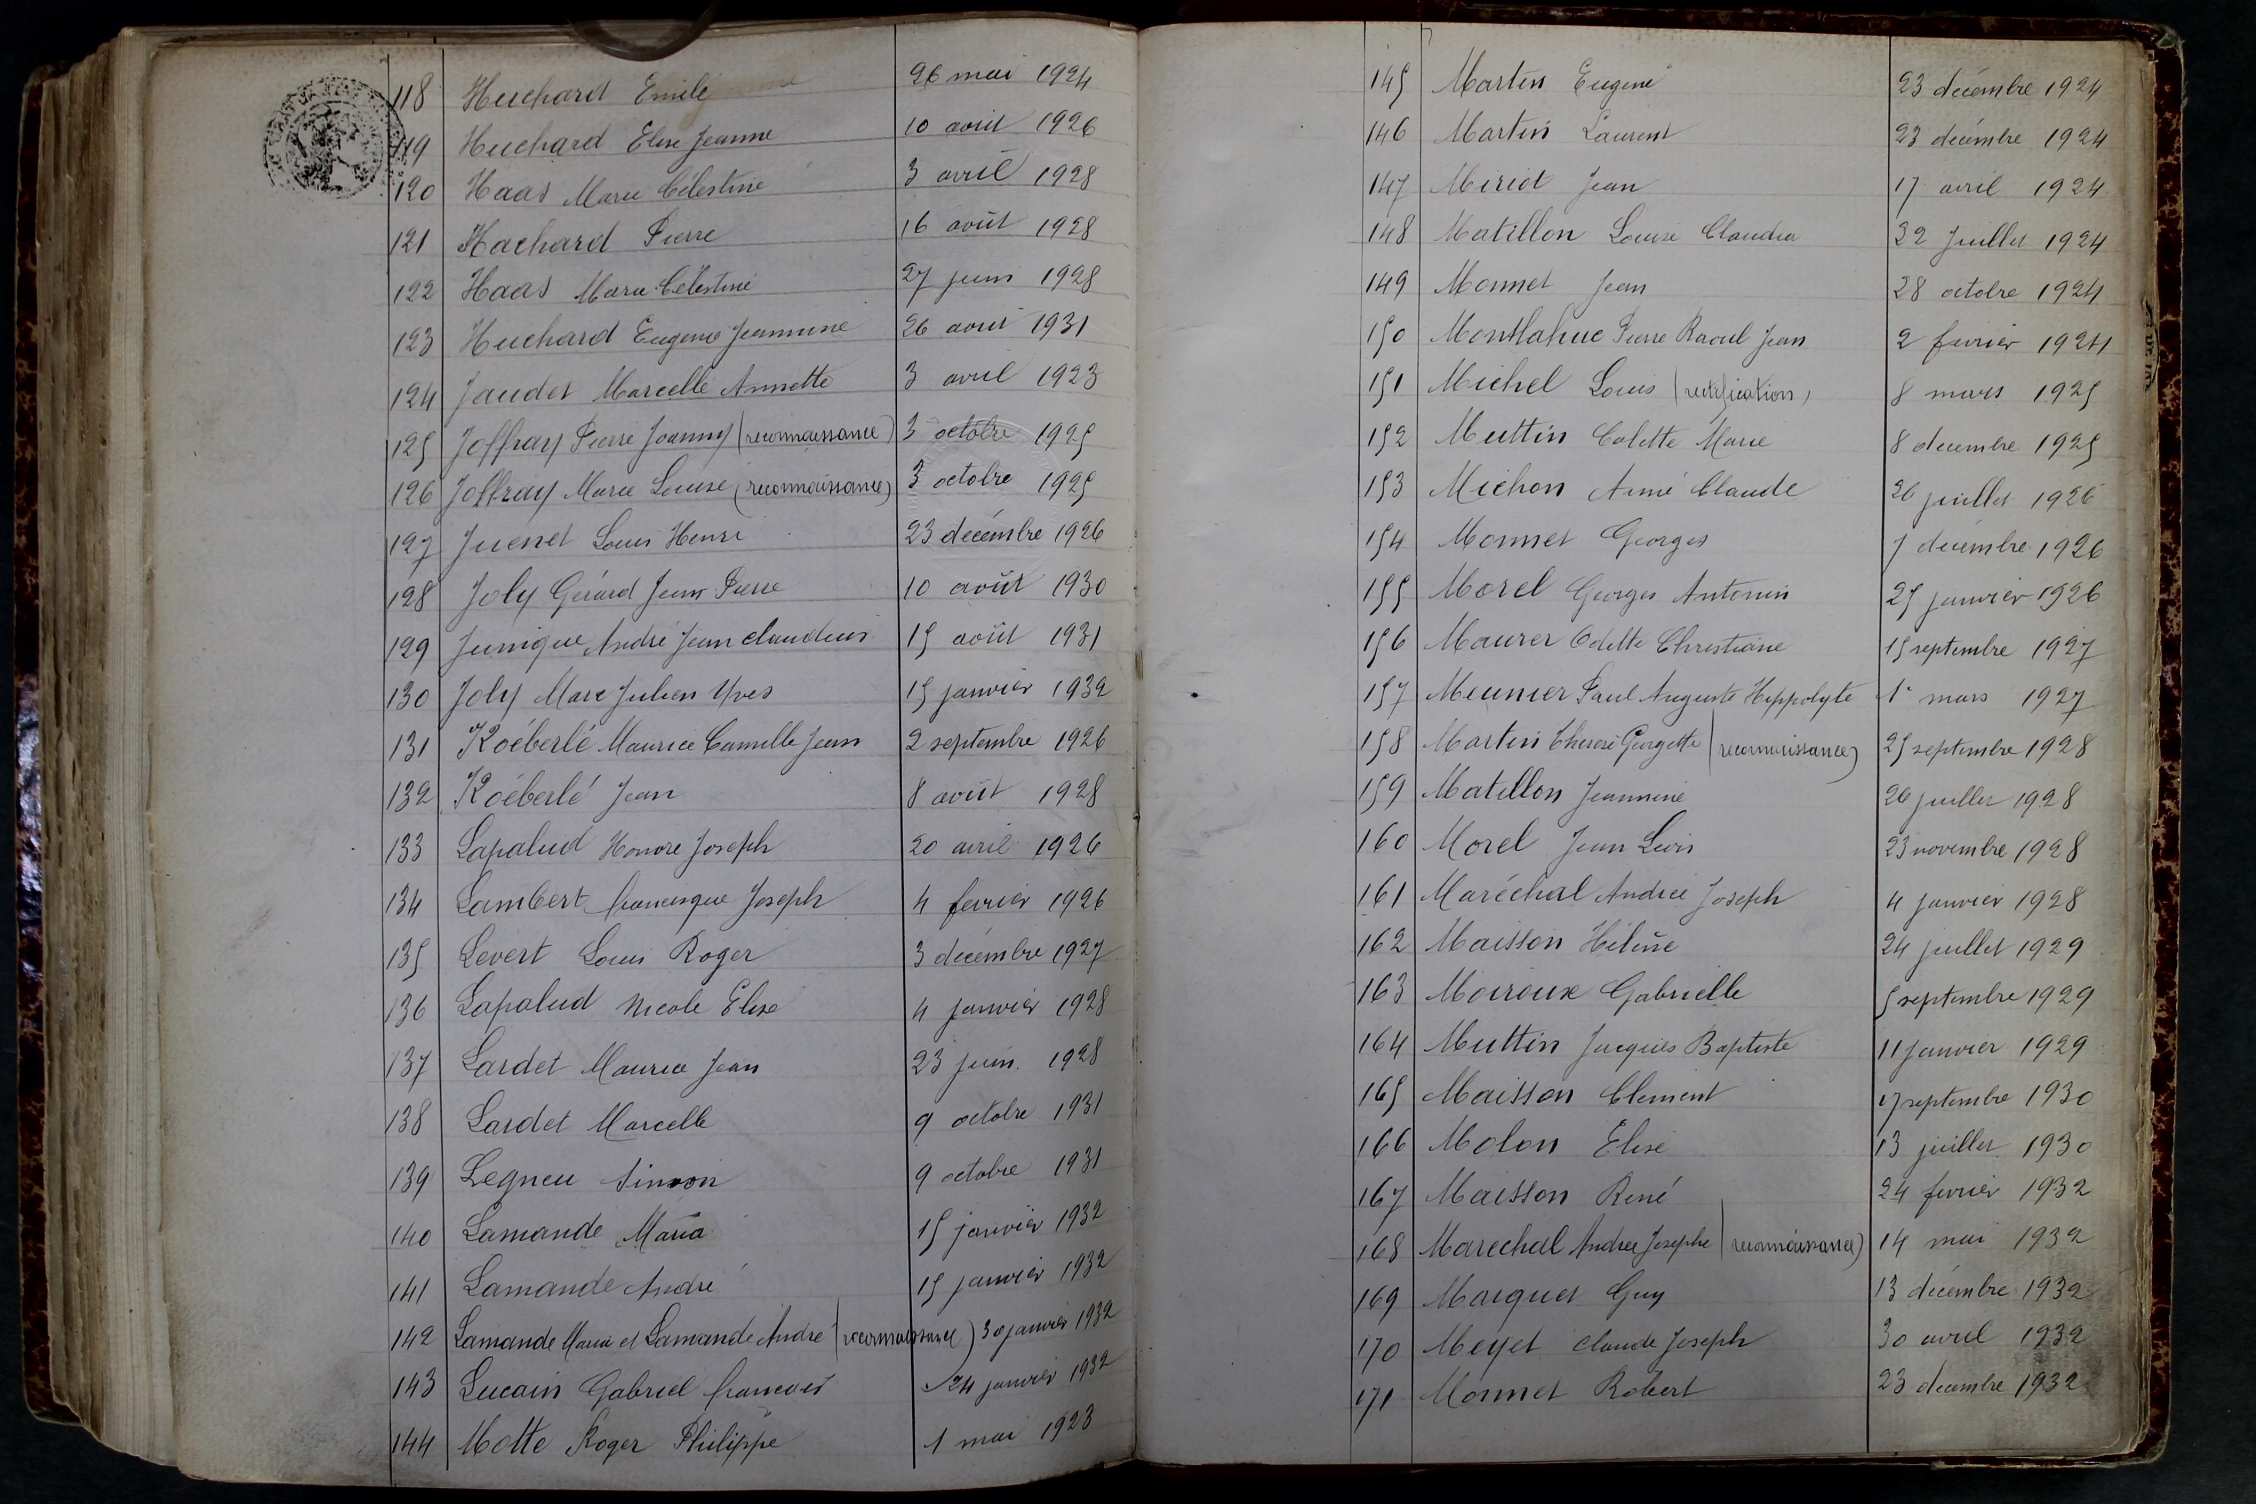 118 Huchard Emile 26 mai 1924
119 Huchard Elise Jeanne 10 aout 1926
120 Haas Marie Célestine 3 avril 1928
121 Hachard Pierre 16 août 1928
122 Haas Marie Célestine 27 juin 1928
123 Huchard Eugenie Jeannine 26 aout 1931
124 Jaudet Marcelle Annette 3 avril 1923
125 Joffray Pierre Joanny (reconnaissance) 3 octobre 1925
126 Joffray Marie Louise (reconnaissance) 3 octobre 1925
127 Juenet Louis Henri 23 décembre 1926
128 Joly Gérard Jean Pierre 10 août 1930
129 Junique André Jean Claudius 15 août 1931
130 Joly Marc Julien Yves 15 janvier 1932
131 Koéberlé Maurice Camille Jean 2 septembre 1926
132 Koéberlé Jean 8 août 1928
133 Lapalud Honore Joseph 20 avril 1926
134 Lambert francisque Joseph 4 fevrier 1926
135 Levert Louis Roger 3 décembre 1927
136 Lapalud Nicole Elise 4 janvier 1928
137 Lardet Maurice Jean 23 juin 1928
138 Lardet Marcelle 9 octobre 1931
139 Legneu Simon 9 octobre 1931
140 Lamande Maria 15 janvier 1932
141 Lamande André 15 janvier 1932
142 Lamande Maria et Lamande André (reconnaissance) 30 janvier 1932
143 Lucain Gabriel francois 24 janvier 1932
144 Motte Roger Philippe 1 mai 1923
145 Martin Eugene 23 décembre 1924
146 Martin Laurent 23 décembre 1924
147 Meriot Jean 17 avril 1924
148 Matillon Louise Claudia 22 Juillet 1924
149 Monnet Jean 28 octobre 1924
150 Montlahuc Pierre Raoul Jean 2 fevrier 1924
151 Michel Louis (rectification) 8 mars 1925
152 Muttin Colette Marie 8 decembre 1925
153 Michon Aimé Claude 26 juillet 1926
154 Monnet Georges 7 décembre 1926
155 Morel Georges Antonin 25 janvier 1926
156 Maurer Odette Christiane 15 septembre 1927
157 Meunier Paul Auguste Hippolyte 1er mars 1927
158 Martin Therese Georgette (reconnaissance) 25 septembre 1928
159 Matillon Jeannine 26 juillet 1928
160 Morel Jean Léon 23 novembre 1928
161 Maréchal Andrée Joseph 4 janvier 1928
162 Maisson Hélène 24 juillet 1929
163 Moiroux Gabrielle 5 septembre 1929
164 Muttin Jacques Baptiste 11 janvier 1929
165 Maisson Clement 17 septembre 1930
166 Molon Elise 13 juillet 1930
167 Maisson René 24 fevrier 1932
168 Marechal Andrée Josephe (reconnaissance) 14 mai 1932
169 Marquet Guy 13 décembre 1932
170 Meyet Claude Joseph 30 avril 1932
171 Monnet Robert 23 decembre 1932